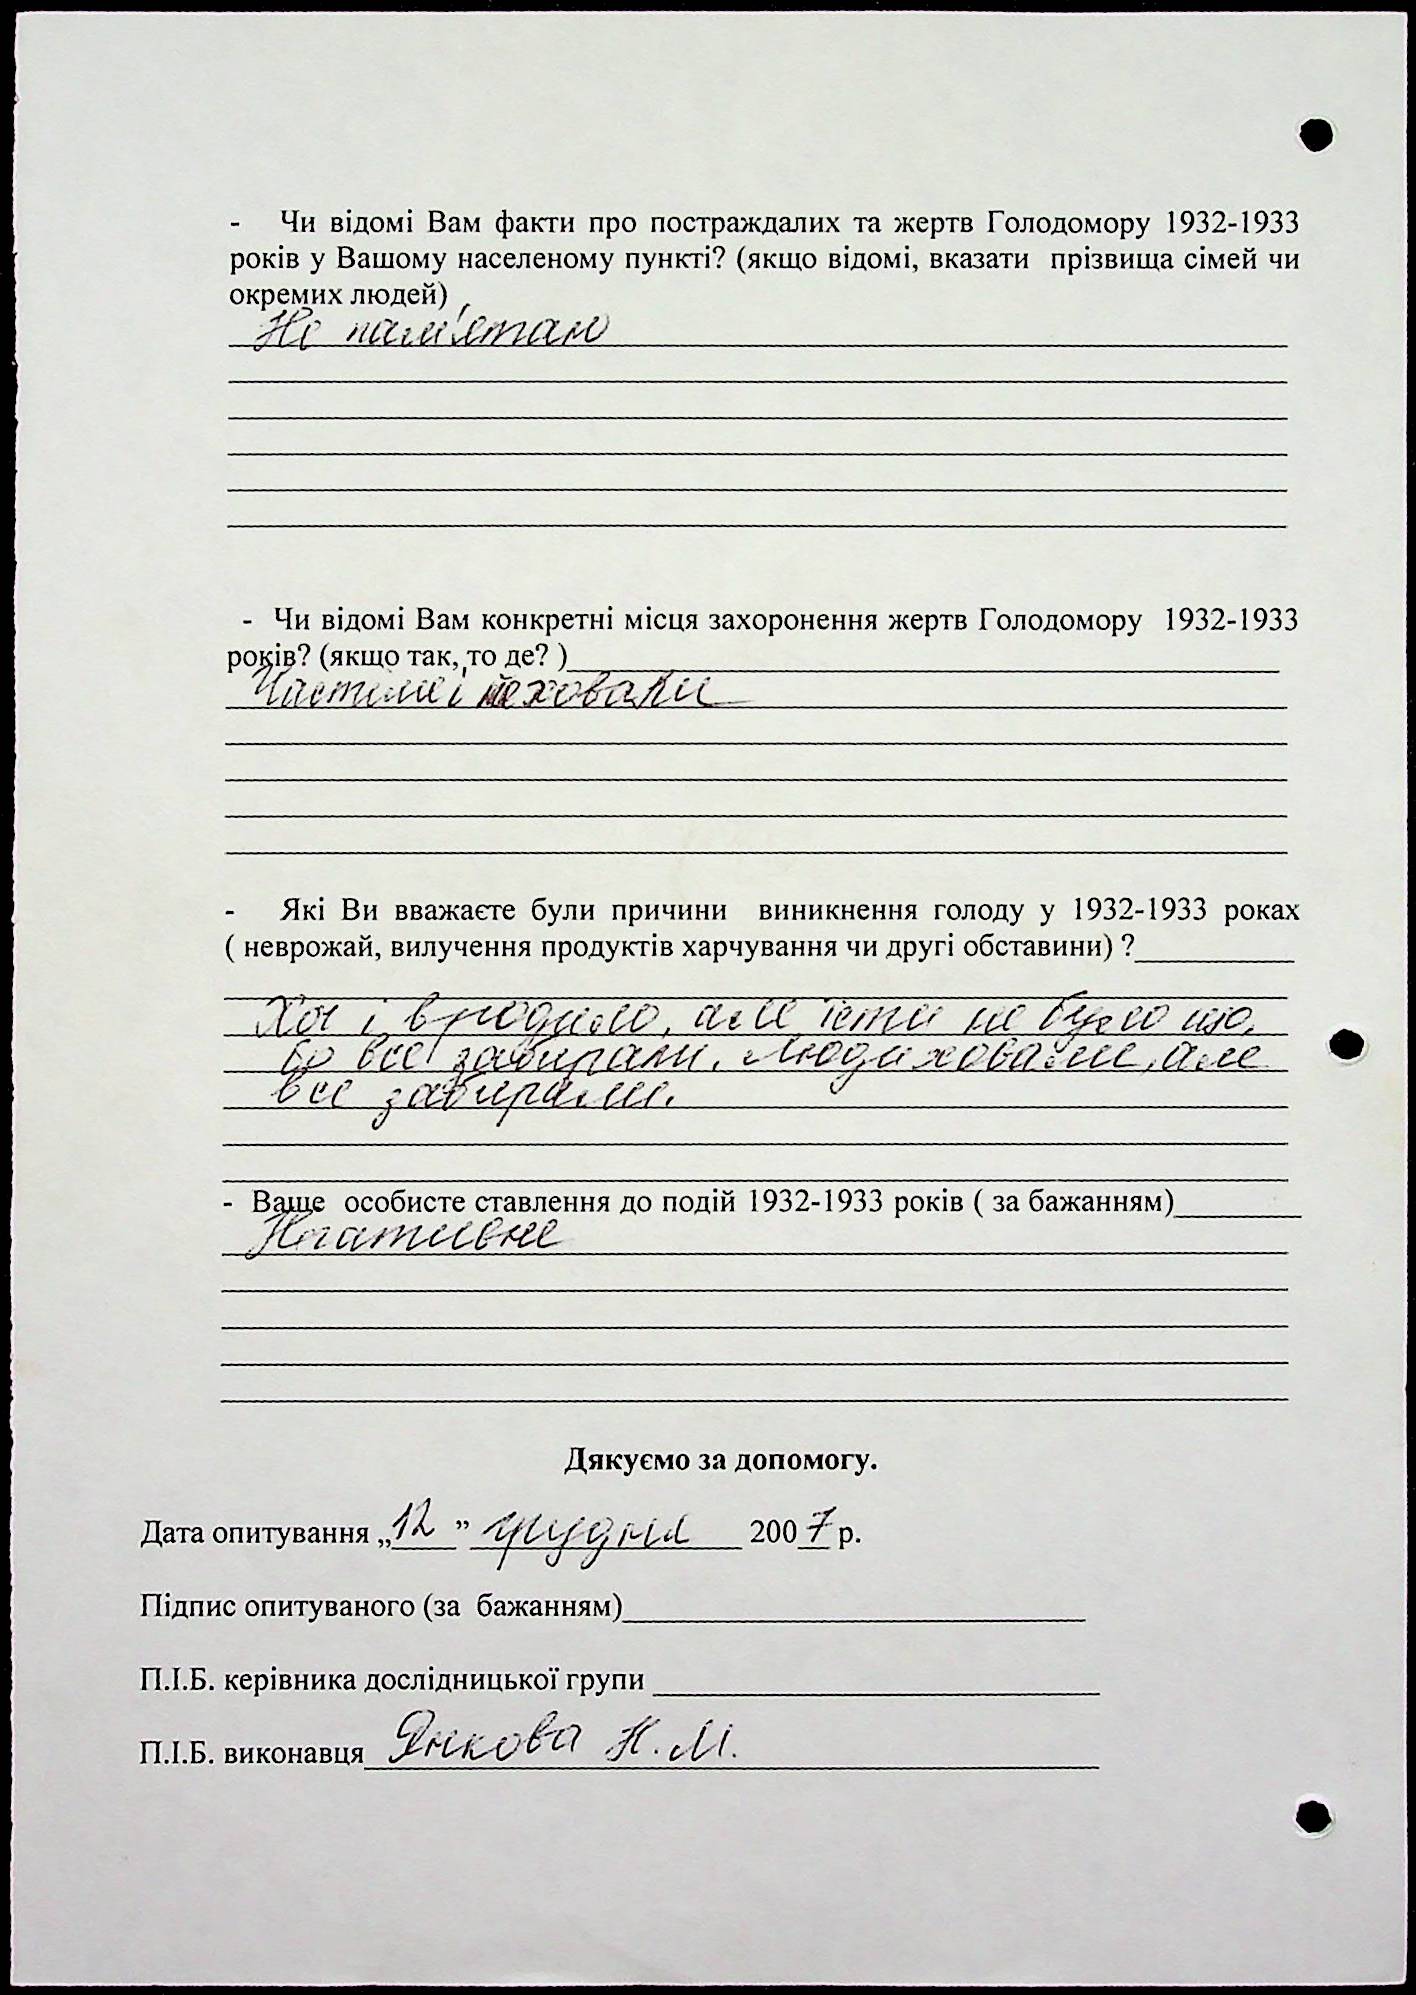 - Чи відомі Вам факти про постраждалих та жертв Голодомору 1932-1933
років у Вашому населеному пункті? (якщо відомі, вказати прізвища сімей чи
окремих людей)
Не пам'ятаю
- Чи відомі Вам конкретні місця захоронення жертв Голодомору 1932-1933
років? (якщо так, то де? )
і ховали
- Які Ви вважаєте були причини виникнення голоду у 1932-1933 роках
( неврожай, вилучення продуктів харчування чи другі обставини) ?
Хоч і вродило, але їсти не було що,
бо все забирали. Люди ховали, але
все забирали.
- Ваше особисте ставлення до подій 1932-1933 років ( за бажанням)
Негативне
Дякуємо за допомогу.
Дата опитування „12” грудня 2007 р.
Підпис опитуваного (за бажанням)
П.І.Б. керівника дослідницької групи
П.І.Б. виконавця Янкова Н.М.